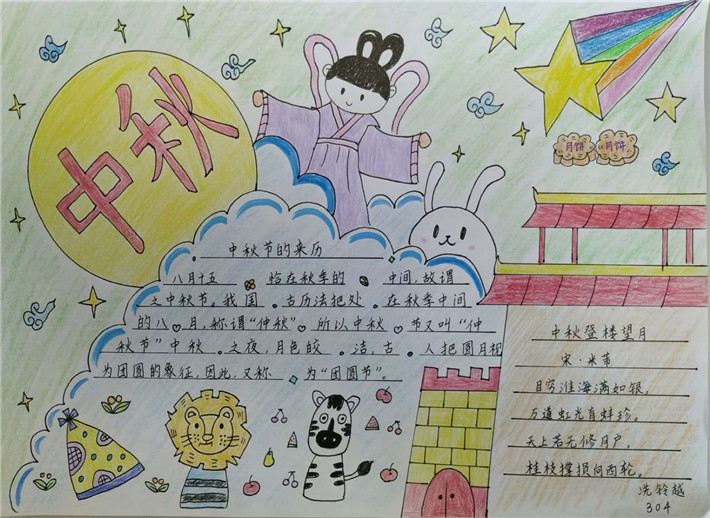 中秋
月饼 月饼
中秋节的来历
八月十五 恰在秋季的 中间,故谓
之中秋节。我国 古历法把处 在秋季中间
的八 月,称谓“仲秋”所以中秋 节又叫“仲
秋节”中秋 之夜,月色皎 洁,古 人把圆月视
为团圆的象征,因此,又称 为“团圆节”。
中秋登楼望月
宋·米芾
目穷淮海满如银,
万道虹光育蚌珍。
天上若无修月户,
桂枝撑损向西轮。
冼铃越
304